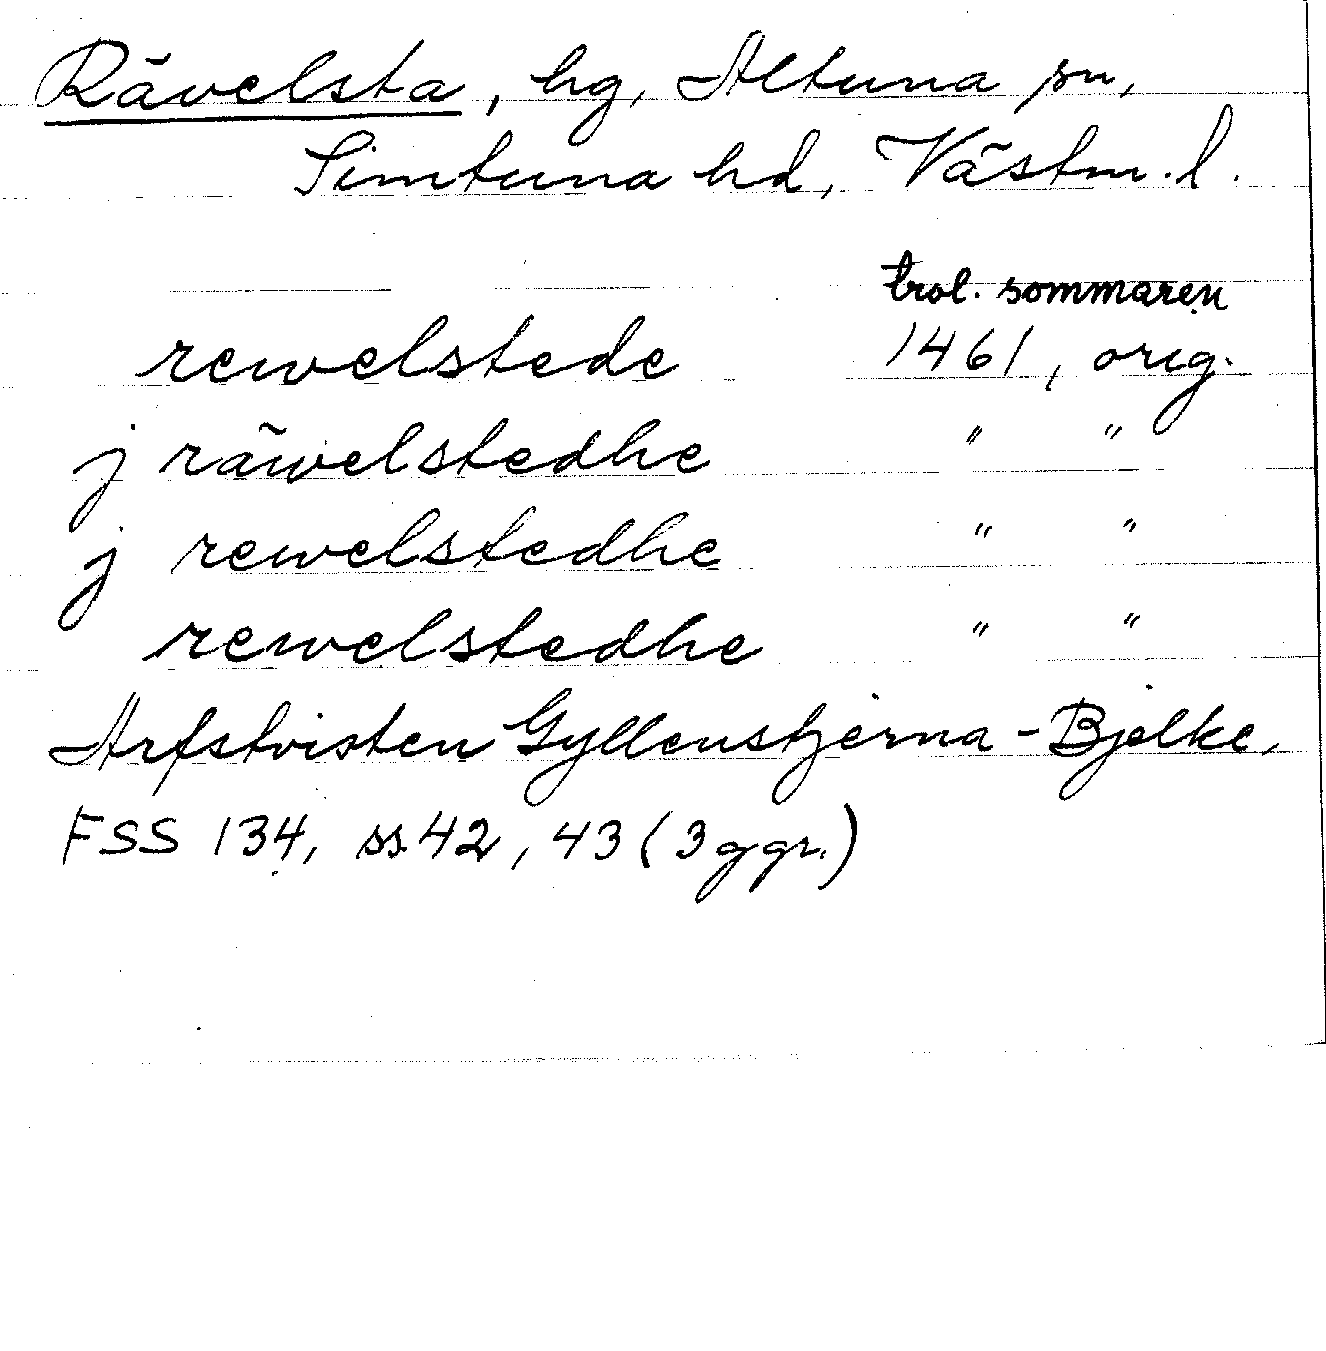 Rävelsta, hg, Altuna sn,
Simtuna hd, Västm. l.
trol. sommaren
rewelstede 1461, orig.
j räwelstedhe " "
j rewelstedhe " "
rewelstedhe " "
Arfstvisten Gyllenstjerna-Bjelke,
FSS 134, ss. 42, 43 (3 ggr.)